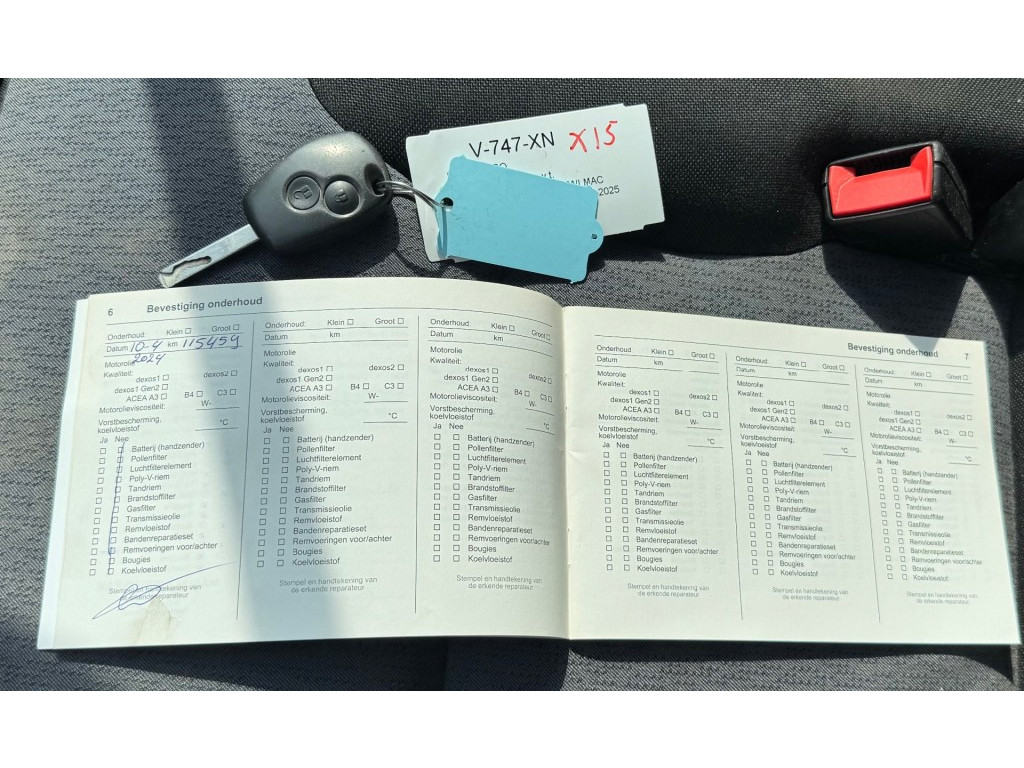 V-747-XN X15
WLMAC
2025
6 Bevestiging onderhoud
Onderhoud: Klein Groot
Datum 10-4 km 115459
2024
Motorolie
Kwaliteit:
dexos1 dexos2
dexos1 Gen2
ACEA A3 B4 C3
Motorolieviscositeit: W-
Vorstbescherming,
koelvloeistof °C
Ja Nee
Batterij (handzender)
Pollenfilter
Luchtfilterelement
Poly-V-riem
Tandriem
Brandstoffilter
Gasfilter
Transmissieolie
Remvloeistof
Bandenreparatieset
Remvoeringen voor/achter
Bougies
Koelvloeistof
Stempel en handtekening van
de erkende reparateur
Onderhoud: Klein Groot
Datum km
Motorolie
Kwaliteit:
dexos1 dexos2
dexos1 Gen2
ACEA A3 B4 C3
Motorolieviscositeit: W-
Vorstbescherming,
koelvloeistof °C
Ja Nee
Batterij (handzender)
Pollenfilter
Luchtfilterelement
Poly-V-riem
Tandriem
Brandstoffilter
Gasfilter
Transmissieolie
Remvloeistof
Bandenreparatieset
Remvoeringen voor/achter
Bougies
Koelvloeistof
Stempel en handtekening van
de erkende reparateur
Onderhoud: Klein Groot
Datum km
Motorolie
Kwaliteit:
dexos1 dexos2
dexos1 Gen2
ACEA A3 B4 C3
Motorolieviscositeit: W-
Vorstbescherming,
koelvloeistof °C
Ja Nee
Batterij (handzender)
Pollenfilter
Luchtfilterelement
Poly-V-riem
Tandriem
Brandstoffilter
Gasfilter
Transmissieolie
Remvloeistof
Bandenreparatieset
Remvoeringen voor/achter
Bougies
Koelvloeistof
Stempel en handtekening van
de erkende reparateur
Bevestiging onderhoud 7
Onderhoud: Klein Groot
Datum km
Motorolie
Kwaliteit:
dexos1 dexos2
dexos1 Gen2
ACEA A3 B4 C3
Motorolieviscositeit: W-
Vorstbescherming,
koelvloeistof °C
Ja Nee
Batterij (handzender)
Pollenfilter
Luchtfilterelement
Poly-V-riem
Tandriem
Brandstoffilter
Gasfilter
Transmissieolie
Remvloeistof
Bandenreparatieset
Remvoeringen voor/achter
Bougies
Koelvloeistof
Stempel en handtekening van
de erkende reparateur
Onderhoud: Klein Groot
Datum km
Motorolie
Kwaliteit:
dexos1 dexos2
dexos1 Gen2
ACEA A3 B4 C3
Motorolieviscositeit: W-
Vorstbescherming,
koelvloeistof °C
Ja Nee
Batterij (handzender)
Pollenfilter
Luchtfilterelement
Poly-V-riem
Tandriem
Brandstoffilter
Gasfilter
Transmissieolie
Remvloeistof
Bandenreparatieset
Remvoeringen voor/achter
Bougies
Koelvloeistof
Stempel en handtekening van
de erkende reparateur
Onderhoud: Klein Groot
Datum km
Motorolie
Kwaliteit:
dexos1 dexos2
dexos1 Gen2
ACEA A3 B4 C3
Motorolieviscositeit: W-
Vorstbescherming,
koelvloeistof °C
Ja Nee
Batterij (handzender)
Pollenfilter
Luchtfilterelement
Poly-V-riem
Tandriem
Brandstoffilter
Gasfilter
Transmissieolie
Remvloeistof
Bandenreparatieset
Remvoeringen voor/achter
Bougies
Koelvloeistof
Stempel en handtekening van
de erkende reparateur